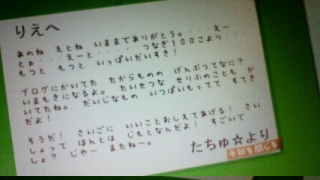 りえへ
あのね えとね いままでありがとう。・・・えー
とぉ・・・・えーと・・・・・ つなぎ100こより・・・
もっと もっと いっぱいだいすき!
ブログにかいてた たからものの げんぶつってなに?
いまもきになるよ。 たいせつな せりふのことも か
いてたね。 だいじなもの いっぱいもってて すてき
だよ!
そうだ! さいごに いいことおしえてあげる! さい
しょって ほんとは じもとなんだよ! すごいで
しょ? じゃー またねー。
たちゅ☆より
手紙を閉じる